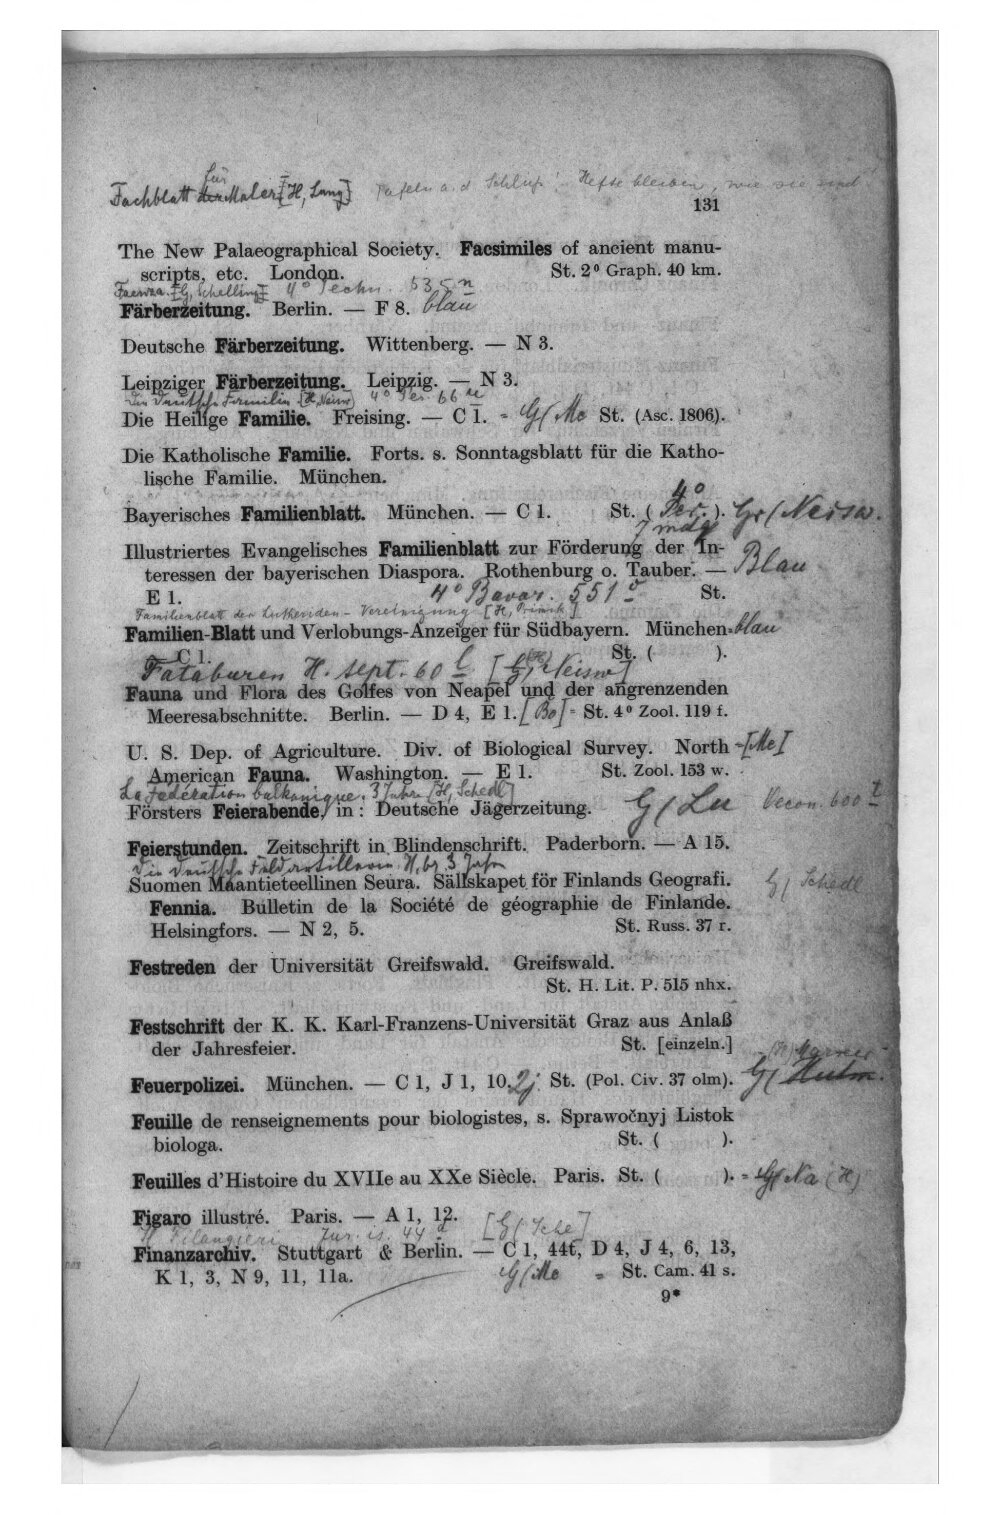 Fachblatt für der Maler [H, Lang] Tafeln a. d. Schluß! Hefte bleiben, wie sie sind
131
The New Palaeographical Society. Facsimiles of ancient manu-
scripts, etc. London. St. 2° Graph. 40 km.
Faenza. [G, Schelling] 4° Techn. 535 n
Färberzeitung. Berlin. — F 8. blau
Deutsche Färberzeitung. Wittenberg. — N 3.
Leipziger Färberzeitung. Leipzig. — N 3.
Die deutsche Familie [H, Neisw] 4° Per. 66
Die Heilige Familie. Freising. — C 1. = G/Me St. (Asc. 1806).
Die Katholische Familie. Forts. s. Sonntagsblatt für die Katho-
lische Familie. München.
4°
Bayerisches Familienblatt. München. — C 1. St. ( Per. ). Gr/Neisw.
7 mdg
Illustriertes Evangelisches Familienblatt zur Förderung der In-
teressen der bayerischen Diaspora. Rothenburg o. Tauber. — Blau
E 1. 4° Bavar. 551 St.
Familienblatt der Lutheriden-Vereinigung [H, ]
Familien-Blatt und Verlobungs-Anzeiger für Südbayern. München. blau
— C 1. St. ( ).
Fataburen H. sept. 60 l [G, (H) Neisw]
Fauna und Flora des Golfes von Neapel und der angrenzenden
Meeresabschnitte. Berlin. — D 4, E 1. [Bo] = St. 4° Zool. 119 f.
U. S. Dep. of Agriculture. Div. of Biological Survey. North =[Me]
American Fauna. Washington. — E 1. St. Zool. 153 w.
La Fédération balkanique. 3 Jahre [H, Schedl]
Försters Feierabende, in: Deutsche Jägerzeitung. G/Lu Oecon. 600 t
Feierstunden. Zeitschrift in Blindenschrift. Paderborn. — A 15.
Die deutsche Feldartillerie H, bg 3 Jahre
Suomen Maantieteellinen Seura. Sällskapet för Finlands Geografi. G/ Schedl
Fennia. Bulletin de la Société de géographie de Finlande.
Helsingfors. — N 2, 5. St. Russ. 37 r.
Festreden der Universität Greifswald. Greifswald.
St. H. Lit. P. 515 nhx.
Festschrift der K. K. Karl-Franzens-Universität Graz aus Anlaß
der Jahresfeier. St. [einzeln.]
(H)
Feuerpolizei. München. — C 1, J 1, 10. 2j St. (Pol. Civ. 37 olm). G/
Feuille de renseignements pour biologistes, s. Sprawočnyj Listok
biologa. St. ( ).
Feuilles d'Histoire du XVIIe au XXe Siècle. Paris. St. ( ). = G/Na (H)
Figaro illustré. Paris. — A 1, 12.
Il Filangieri Jur. is. 44 [G/ Sche]
Finanzarchiv. Stuttgart & Berlin. — C 1, 44t, D 4, J 4, 6, 13,
K 1, 3, N 9, 11, 11a. G/Me = St. Cam. 41 s.
9*